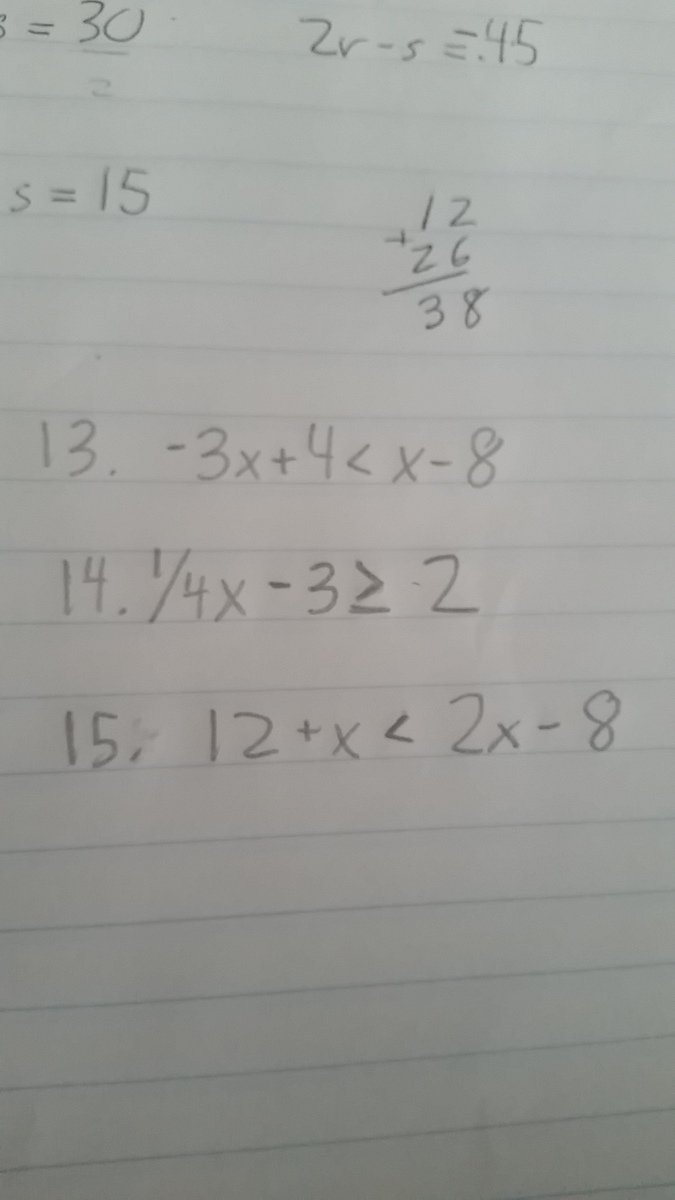 s = 30 2r - s = -.45
=
s = 15
12
+ 26
38
13. -3x + 4 < x - 8
14. 1/4x - 3 ≥ -2
15. 12 + x < 2x - 8